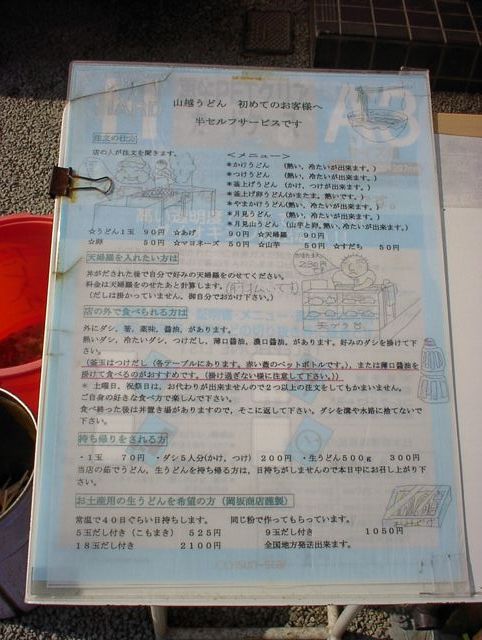 山越うどん 初めてのお客様へ
半セルフサービスです
注文の仕方
店の人が注文を聞きます。
<メニュー>
*かけうどん (熱い、冷たいが出来ます。)
*つけうどん (熱い、冷たいが出来ます。)
*釜上げうどん (かけ、つけが出来ます。)
*釜上げ卵うどん(かまたま。熱いです。)
*やまかけうどん(熱い、冷たいが出来ます。)
*月見うどん (熱い、冷たいが出来ます。)
*月見山うどん (山芋と卵。熱い、冷たいが出来ます。)
☆うどん1玉 90円 ☆あげ 90円 ☆天婦羅 90円
☆卵 50円 ☆マヨネーズ 50円 ☆山芋 50円 ☆すだち 50円
天婦羅を入れたい方は
丼がだされた後で自分で好みの天婦羅をのせてください。
料金は天婦羅をのせたあと計算します。
(だしは掛かっていません。御自分でおかけ下さい。)
店の外で食べられる方は
外にダシ、葱、薬味、醤油、があります。
熱いダシ、冷たいダシ、つけだし、薄口醤油、濃口醤油、があります。好みのダシを掛けて下さい。
(釜玉はつけだし(各テーブルにあります。赤い蓋のペットボトルです。)、または薄口醤油を
掛けて食べるのがおすすめです。(掛け過ぎない様に注意して下さい。))
*土曜日、祝祭日は、おかわりが出来ませんので2つ以上の注文をしてもかまいません。
ご自身の好きな食べ方で楽しんで下さい。
食べ終った後は丼置き場がありますので、そこに返して下さい。ダシを溝や水路に捨てないで
下さい。
持ち帰りをされる方
・1玉 70円 ・ダシ5人分(かけ、つけ) 200円 ・生うどん500g 300円
当店の茹でうどん、生うどんを持ち帰る方は、日持ちがしませんので本日中にお召し上がり下
さい。
お土産用の生うどんを希望の方(岡坂商店謹製)
常温で40日ぐらい日持ちします。 同じ粉で作ってもらっています。
5玉だし付き(こもまき) 525円 9玉だし付き 1050円
18玉だし付き 2100円 全国地方発送出来ます。